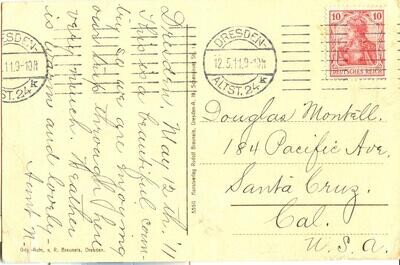 Dresden, May 12th, '11
This is a beautiful coun-
try so we are enjoying
our trip through here
very much. Weather
is warm and lovely
Aunt N.
DRESDEN-
ALTST. 24 k
.11.9-10N
DRESDEN-
ALTST. 24 k
12.5.11.9-10N
10 10
DEUTSCHES REICH
Douglas Montell.
184 Pacific Ave,
Santa Cruz.
Cal.
U.S.A.
5590 Kunstverlag Rudolf Brauneis, Dresden-A. 19,
Orig.-Aufn. v. R. Brauneis, Dresden.